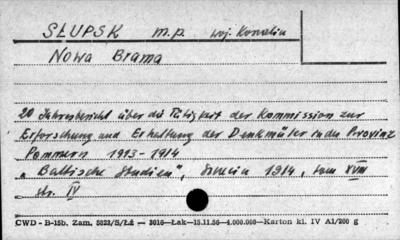 SŁUPSK m.p. woj. Koszalin
Nowa Brama
20 Jahresbericht über die Tätigkeit der Kommission zur
Erforschung und Erhaltung der Denkmäler in der Provinz
Pommern 1913-1914
"Baltische Studien", 1914, tom XVIII
str. IV
CWD - B-15b. Zam. 5822/S/Łź — 3016—Łak—15.11.56—4.000.000—Karton kl. IV A1/200 g